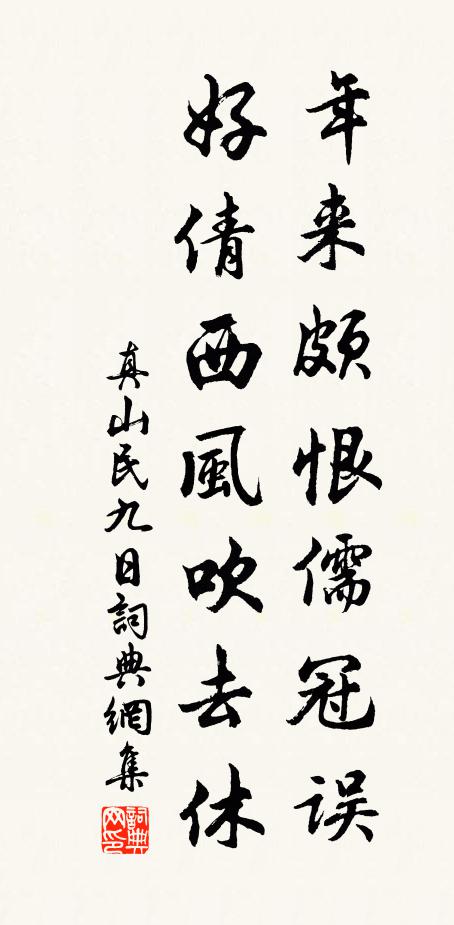 年来頗恨儒冠误
好倩西風吹去休
真山民九日詞典網集
詞典网印